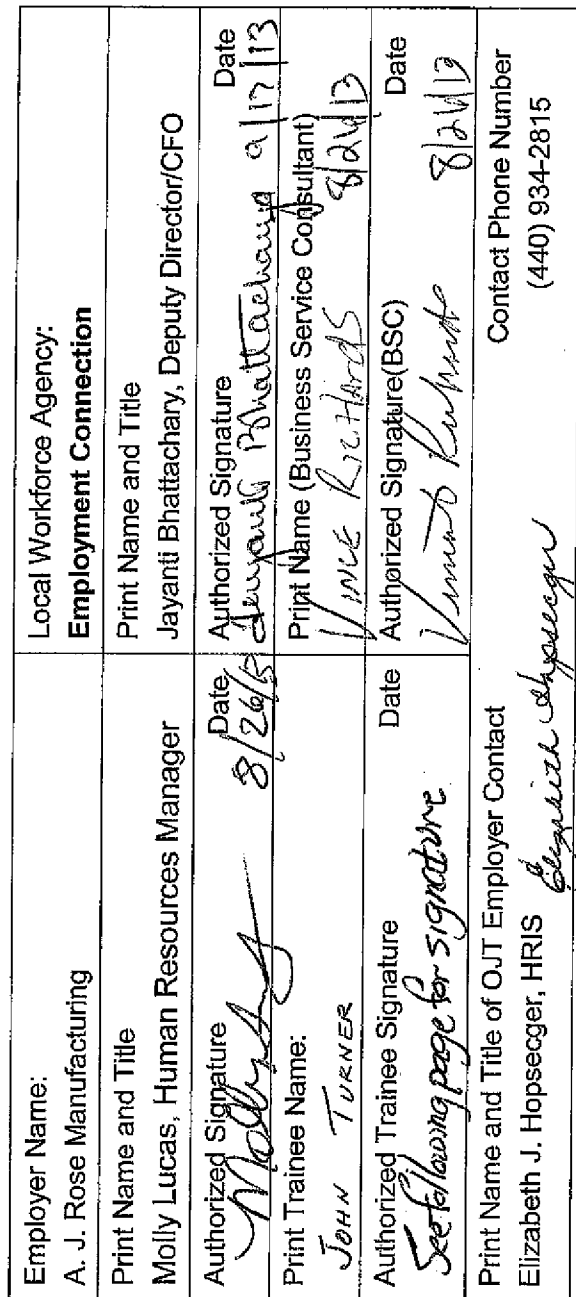 Employer Name:
A. J. Rose Manufacturing
Local Workforce Agency:
Employment Connection
Print Name and Title
Molly Lucas, Human Resources Manager
Print Name and Title
Jayanti Bhattachary, Deputy Director/CFO
Authorized Signature Date
8/26/13
Authorized Signature Date
Jayanti Bhattacharya 9/17/13
Print Trainee Name:
JOHN TURNER
Print Name (Business Service Consultant)
VINCE RICHARDS 8/26/13
Authorized Trainee Signature Date
See following page for signature
Authorized Signature(BSC) Date
8/26/13
Print Name and Title of OJT Employer Contact
Elizabeth J. Hopsecger, HRIS Elizabeth Hopsecger
Contact Phone Number
(440) 934-2815